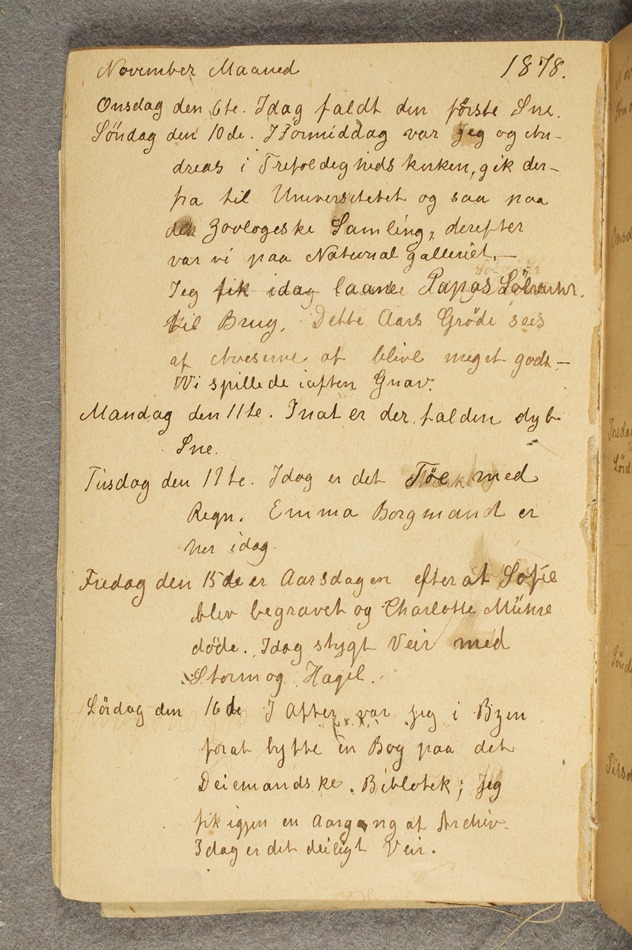 November Maaned 1878.
Onsdag den 6te. Idag faldt den første Sne.
Søndag den 10de. I Formiddag var jeg og An-
dreas i Trefoldeghedskirken, gik der-
fra til Universitetet og saa paa
den Zoologeske Samling, derefter
var vi paa National galleriet. –
Jeg fik idag laane Papas Sølvuhr.
til Brug. Dette Aars Grøde sees
af Aviserne at blive meget godt –
Wi spillede iaften Gnav.
Mandag den 11te. Inat er der falden dyb
Sne.
Tirsdag den 12te. Idag er det Tøe med
Regn. Emma Borgmand er
her idag.
Fredag den 15de er Aarsdagen efter at Sofie
blev begravet og Charlotte
døde. Idag stygt Veir med
Storm og Hagel.
Lördag den 16de I Aften var jeg i Byen
forat bytte en Bog paa det
Deiemandske Bibliotek; Jeg
fik igjen en Aargang af Archiv.
Idag er det deiligt Veir.